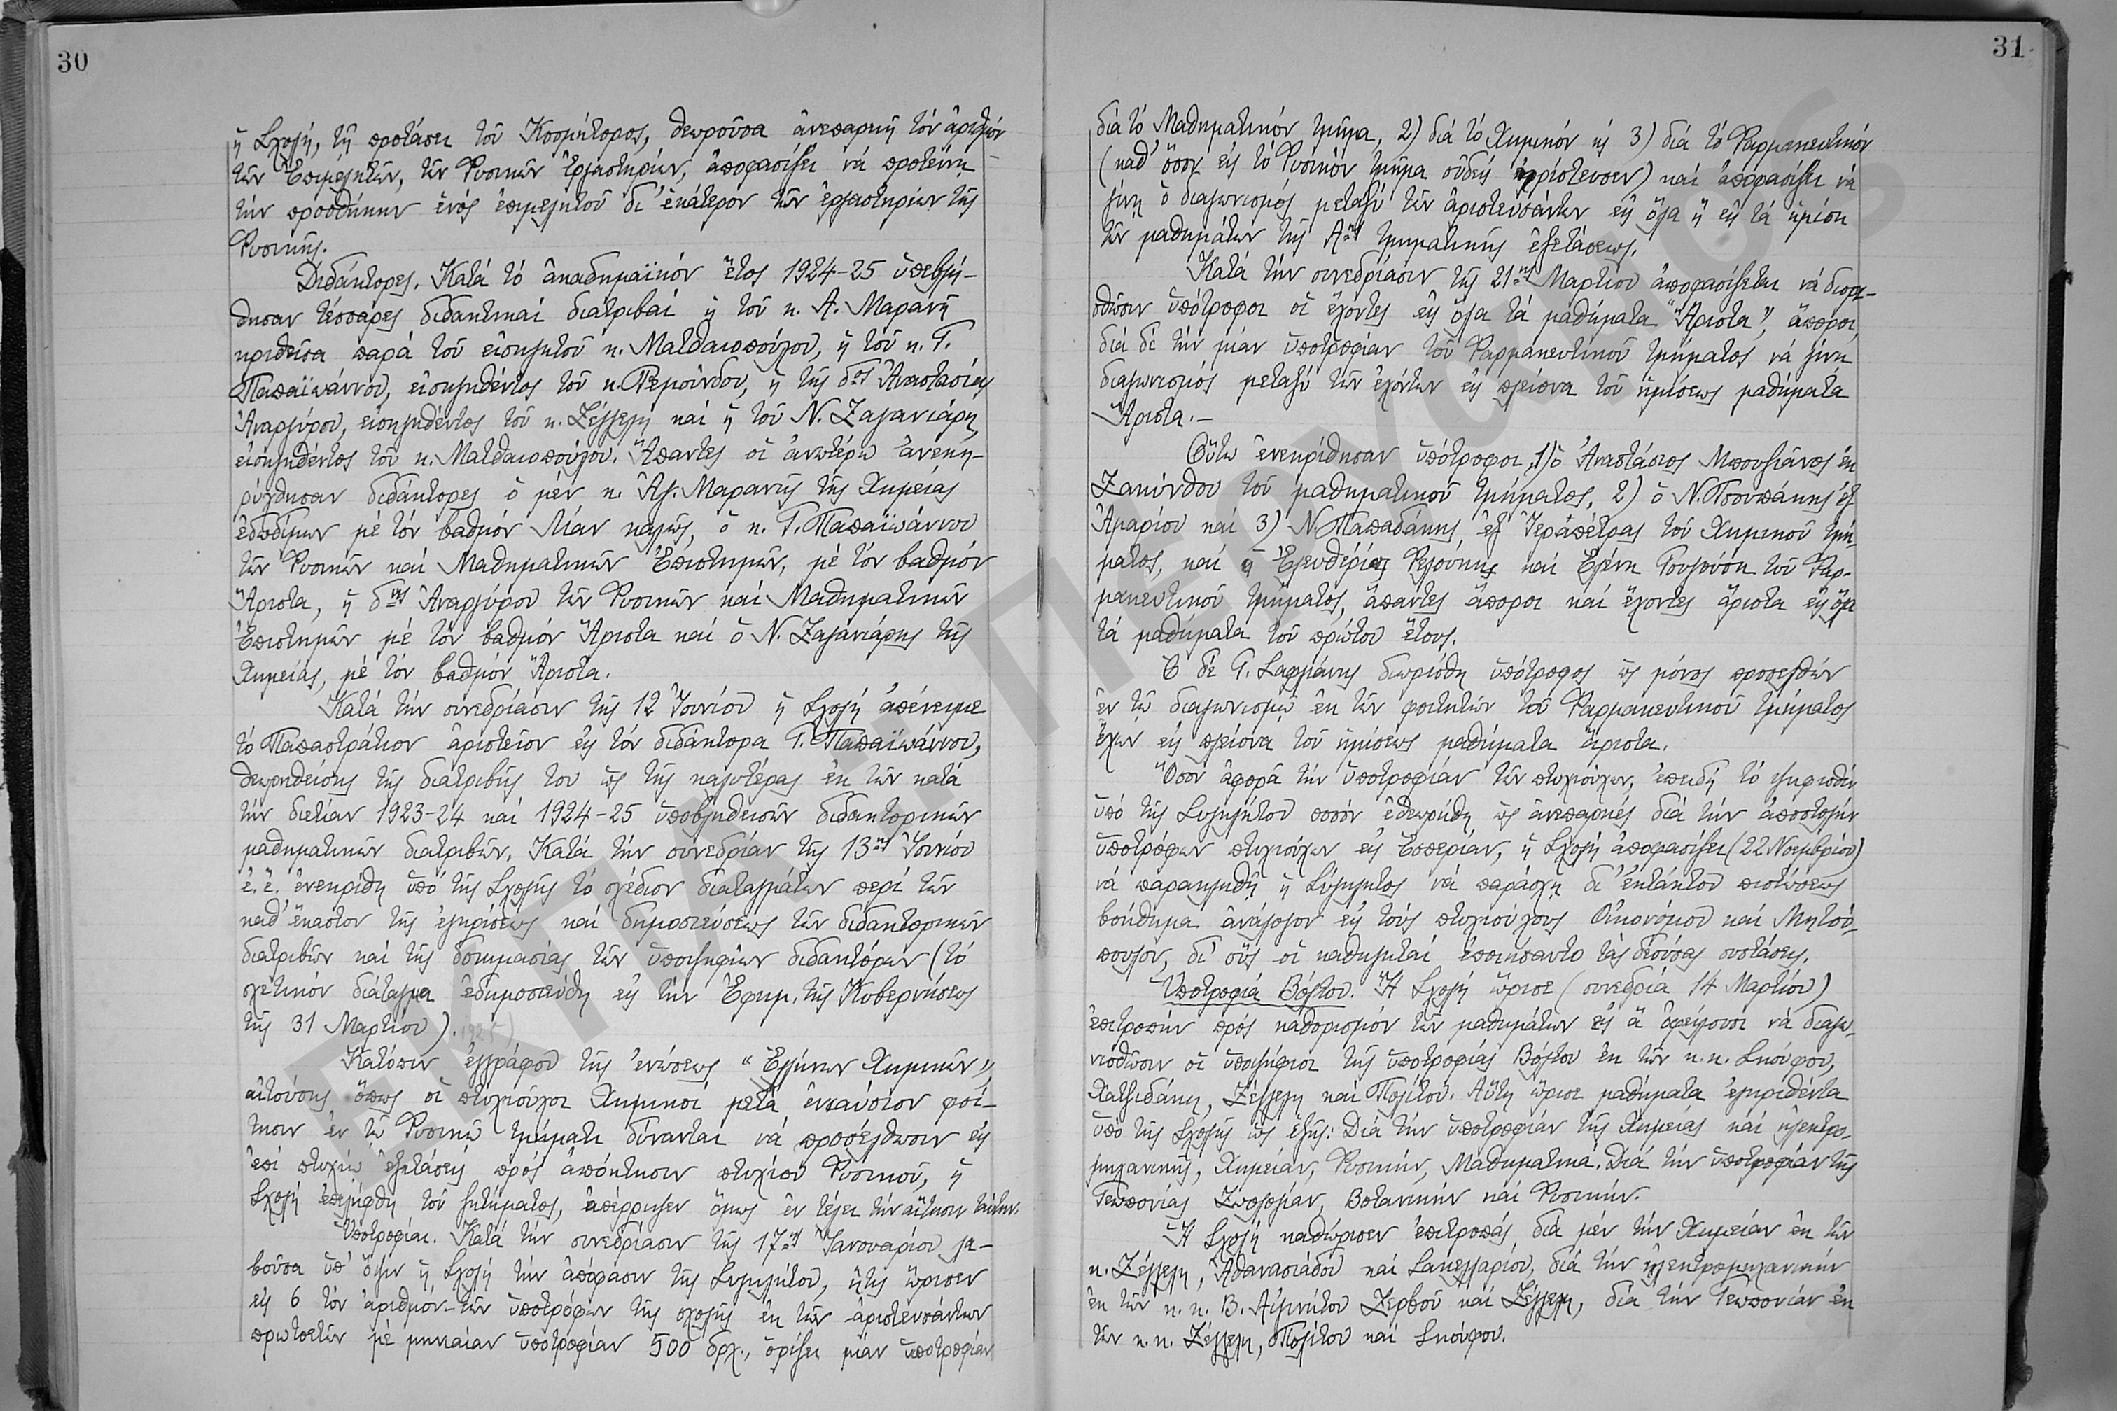 30
ἡ Σχολή, τῇ προτάσει τοῦ Κοσμήτορος, θεωροῦσα ἀνεπαρκῆ τὸν ἀριθμὸν
τῶν Ἐπιμελητῶν, τῶν Φυσικῶν Ἐργαστηρίων, ἀποφασίζει νὰ προτείνῃ
τὴν προσθήκην ἑνὸς ἐπιμελητοῦ δι' ἑκάτερον τῶν ἐργαστηρίων τῆς
Φυσικῆς.
Διδάκτορες. Κατὰ τὸ ἀκαδημαϊκὸν ἔτος 1924-25 ὑπεβλή-
θησαν τέσσαρες διδακτικαὶ διατριβαὶ ἡ τοῦ κ. Α. Μαρανῆ
κριθεῖσα παρὰ τοῦ εἰσηγητοῦ κ. Ματθαιοπούλου, ἡ τοῦ κ. Γ.
Παπαϊωάννου, εἰσηγηθέντος τοῦ κ. Ρεμούνδου, ἡ τῆς δος Ἀναστασίας
Ἀναργύρου, εἰσηγηθέντος τοῦ κ. Ζέγγελη καὶ ἡ τοῦ Ν. Ζαγανιάρη,
εἰσηγηθέντος τοῦ κ. Ματθαιοπούλου. Ἅπαντες οἱ ἀνωτέρω ἀνεκη-
ρύχθησαν διδάκτορες ὁ μὲν κ. Ἀγ. Μαρανῆς τῆς Χημείας
ἐδωδίμων μὲ τὸν βαθμὸν Λίαν καλῶς, ὁ κ. Γ. Παπαϊωάννου
τῶν Φυσικῶν καὶ Μαθηματικῶν Ἐπιστημῶν, μὲ τὸν βαθμὸν
Ἄριστα, ἡ δνὶς Ἀναργύρου τῶν Φυσικῶν καὶ Μαθηματικῶν
Ἐπιστημῶν μὲ τὸν βαθμὸν Ἄριστα καὶ ὁ Ν. Ζαγανιάρης τῆς
Χημείας, μὲ τὸν βαθμὸν Ἄριστα.
Κατὰ τὴν συνεδρίασιν τῆς 12 Ἰουνίου ἡ Σχολὴ ἀπένειμε
τὸ Παπαστράτιον ἀριστεῖον εἰς τὸν διδάκτορα Γ. Παπαϊωάννου,
θεωρηθείσης τῆς διατριβῆς του ὡς τῆς καλυτέρας ἐκ τῶν κατὰ
τὴν διετίαν 1923-24 καὶ 1924-25 ὑποβληθεισῶν διδακτορικῶν
μαθηματικῶν διατριβῶν. Κατὰ τὴν συνεδρίαν τῆς 13ης Ἰουνίου
ἐ. ἔ. ἐνεκρίθη ὑπὸ τῆς Σχολῆς τὸ σχέδιον διαταγμάτων περὶ τῶν
καθ' ἕκαστον τῆς ἐγκρίσεως καὶ δημοσιεύσεως τῶν διδακτορικῶν
διατριβῶν καὶ τῆς δοκιμασίας τῶν ὑποψηφίων διδακτόρων (τὸ
σχετικὸν διάταγμα ἐδημοσιεύθη εἰς τὴν Ἐφημ. τῆς Κυβερνήσεως
τῆς 31 Μαρτίου). 1925)
Κατόπιν ἐγγράφου τῆς ἑνώσεως "Ἑλλήνων Χημικῶν",
αἰτούσης ὅπως οἱ πτυχιοῦχοι Χημικοὶ μετὰ ἐνιαύσιον φοί-
τησιν ἐν τῷ Φυσικῷ τμήματι δύνανται νὰ προσέλθωσιν εἰς
ἐπὶ πτυχίῳ ἐξετάσεις πρὸς ἀπόκτησιν πτυχίου Φυσικοῦ, ἡ
Σχολὴ ἐπελήφθη τοῦ ζητήματος, ἀπέρριψεν ὅμως ἐν τέλει τὴν αἴτησιν ταύτην.
Ὑποτροφίαι. Κατὰ τὴν συνεδρίασιν τῆς 17ης Ἰανουαρίου λα-
βοῦσα ὑπ' ὄψιν ἡ Σχολὴ τὴν ἀπόφασιν τῆς Συγκλήτου, ἥτις ὥρισεν
εἰς 6 τὸν ἀριθμὸν τῶν ὑποτρόφων τῆς σχολῆς ἐκ τῶν ἀριστευσάντων
πρωτοετῶν μὲ μηνιαίαν ὑποτροφίαν 500 δρχ., ὁρίζει μίαν ὑποτροφίαν
31
διὰ τὸ Μαθηματικὸν τμῆμα, 2) διὰ τὸ Χημικὸν κ' 3) διὰ τὸ Φαρμακευτικὸν
(καθ' ὅσον εἰς τὸ Φυσικὸν τμῆμα οὐδεὶς ἠρίστευσεν) καὶ ἀποφασίζει νὰ
γίνῃ ὁ διαγωνισμὸς μεταξὺ τῶν ἀριστευσάντων εἰς ὅλα ἢ εἰς τὰ ἡμίση
τῶν μαθημάτων τῆς Αης τμηματικῆς ἐξετάσεως.
Κατὰ τὴν συνεδρίασιν τῆς 21ης Μαρτίου ἀποφασίζεται νὰ διορι-
σθῶσιν ὑπότροφοι οἱ ἔχοντες εἰς ὅλα τὰ μαθήματα "Ἄριστα", ἄποροι,
διὰ δὲ τὴν μίαν ὑποτροφίαν τοῦ Φαρμακευτικοῦ τμήματος νὰ γίνῃ
διαγωνισμὸς μεταξὺ τῶν ἐχόντων εἰς πλείονα τοῦ ἡμίσεως μαθήματα
Ἄριστα.—
Οὕτω ἐνεκρίθησαν ὑπότροφοι, 1) ὁ Ἀναστάσιος Μπουζιάνος ἐκ
Ζακύνθου τοῦ μαθηματικοῦ τμήματος, 2) ὁ Ν. Τσουπάκης ἐξ
Ἀμαρίου καὶ 3) Ν. Παπαδάκης, ἐξ Ἱεραπέτρας τοῦ Χημικοῦ τμή-
ματος, καὶ ἡ Ἐλευθερία καὶ Ἑλένη τοῦ Φαρ-
μακευτικοῦ τμήματος, ἅπαντες ἄποροι καὶ ἔχοντες ἄριστα εἰς ὅλα
τὰ μαθήματα τοῦ πρώτου ἔτους.
Ὁ δὲ Γ. διωρίσθη ὑπότροφος ὡς μόνος προσελθὼν
ἐν τῷ διαγωνισμῷ ἐκ τῶν φοιτητῶν τοῦ Φαρμακευτικοῦ τμήματος
ἔχων εἰς πλείονα τοῦ ἡμίσεως μαθήματα ἄριστα.
Ὅσον ἀφορᾷ τὴν ὑποτροφίαν τῶν πτυχιούχων, ἐπειδὴ τὸ ψηφισθὲν
ὑπὸ τῆς Συγκλήτου ποσὸν ἐθεωρήθη ὡς ἀνεπαρκὲς διὰ τὴν ἀποστολὴν
ὑποτρόφων πτυχιούχων εἰς Ἑσπερίαν, ἡ Σχολὴ ἀποφασίζει (22 Νοεμβρίου)
νὰ παρακληθῇ ἡ Σύγκλητος νὰ παράσχῃ δι' ἐκτάκτου πιστώσεως
βοήθημα ἀνάλογον εἰς τοὺς πτυχιούχους Οἰκονόμου καὶ Μητσό-
πουλον, δι' οὓς οἱ καθηγηταὶ ἐποιήσαντο τὰς δεούσας συστάσεις.
Ὑποτροφία Βόλτου. Ἡ Σχολὴ ὥρισε (συνεδρία 14 Μαρτίου)
ἐπιτροπὴν πρὸς καθορισμὸν τῶν μαθημάτων εἰς ἃ ὀφείλουσι νὰ διαγω-
νισθῶσιν οἱ ὑποψήφιοι τῆς ὑποτροφίας Βόλτου ἐκ τῶν κ.κ. Σκούφου,
Χατζιδάκη, Ζέγγελη καὶ Πολίτου. Αὕτη ὥρισε μαθήματα ἐγκριθέντα
ὑπὸ τῆς Σχολῆς ὡς ἑξῆς: Διὰ τὴν ὑποτροφίαν τῆς Χημείας καὶ ἠλεκτρο-
μηχανικῆς, Χημείαν, Φυσικήν, Μαθηματικά. Διὰ τὴν ὑποτροφίαν τῆς
Γεωπονίας Ζωολογίαν, Βοτανικὴν καὶ Φυσικήν.
Ἡ Σχολὴ καθώρισεν ἐπιτροπάς, διὰ μὲν τὴν Χημείαν ἐκ τῶν
κ. Ζέγγελη, Ἀθανασιάδου καὶ Σακελλαρίου, διὰ τὴν ἠλεκτρομηχανικὴν
ἐκ τῶν κ. κ. Β. Αἰγινήτου Ζερβοῦ καὶ Ζέγγελη, διὰ τὴν Γεωπονίαν ἐκ
τῶν κ.κ. Ζέγγελη, Πολίτου καὶ Σκούφου.